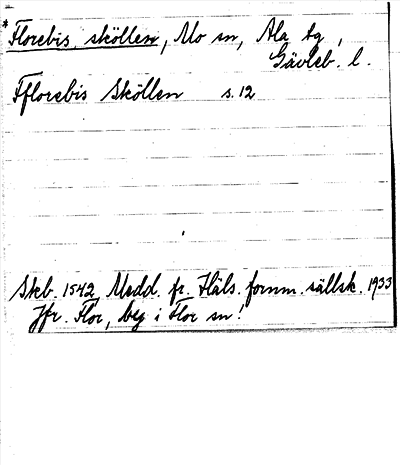 * Florebis sköllen, Mo sn, Ala tg,
Gävleb. l.
Fflorebis Sköllen s. 12
Skb. 1542, Medd. fr. Häls. fornm. sällsk. 1933
Jfr. Flor, by i Flor sn!